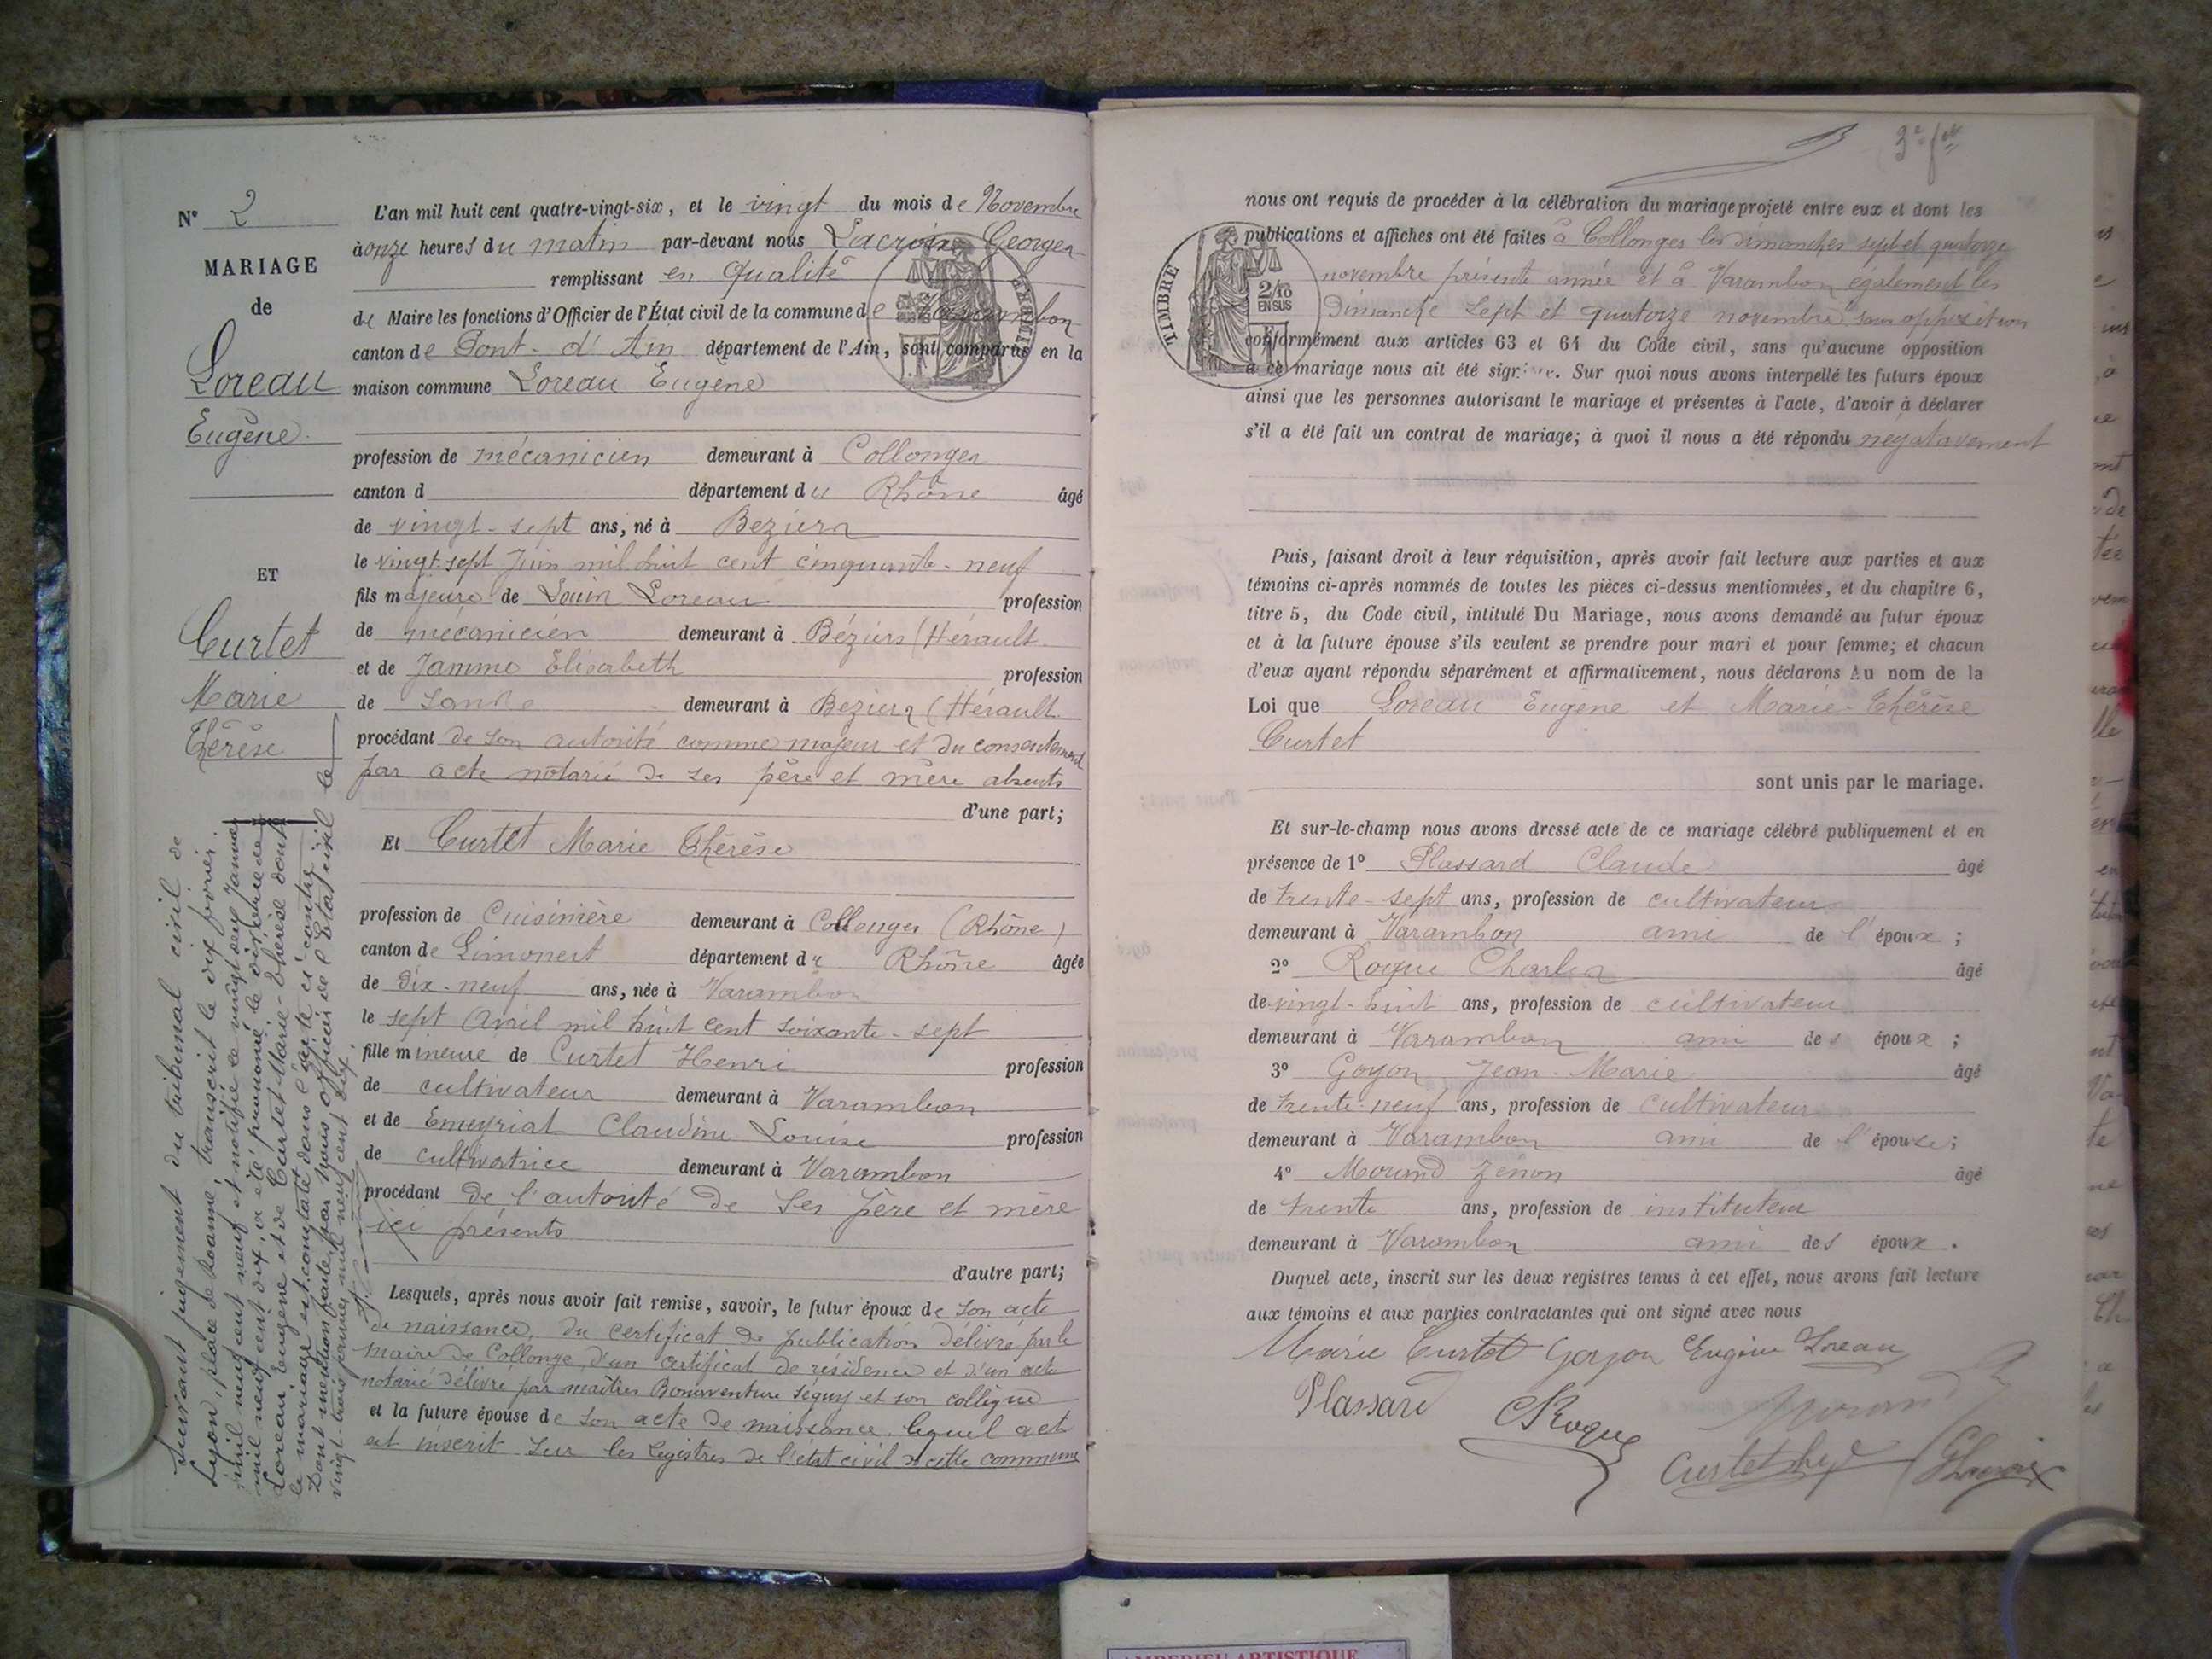 N° 2
MARIAGE
de
Loreau
Eugène
ET
Curtet
Marie
Thérèse
Suivant jugement du tribunal civil de
Lyon, place de Roanne, transcrit le dix février
mil neuf cent neuf et notifié ce vingt deux Janvier
mil neuf cent dix, a été prononcé le divorce de
Loreau Eugène et de Curtet Marie-Thérèse dont
le mariage est constaté dans l'acte ci-contre.
Dont mention faite par nous officier de l'Etat civil le
vingt-trois janvier mil neuf cent dix.
L'an mil huit cent quatre-vingt-six, et le vingt du mois de Novembre
à onze heures du matin par-devant nous Lacroix Georges
remplissant en qualité
de Maire les fonctions d'Officier de l'État civil de la commune de Varambon
canton de Pont-d'Ain département de l'Ain, sont comparus en la
maison commune Loreau Eugène
profession de mécanicien demeurant à Collonges
canton d département du Rhône âgé
de vingt-sept ans, né à Beziers
le vingt-sept Juin mil huit cent cinquante-neuf
fils majeure de Louis Loreau profession
de mécanicien demeurant à Béziers (Hérault
et de Jamme Elisabeth profession
de demeurant à Beziers (Hérault
procédant de son autorité comme majeur et du consentement
par acte notarié de ses père et mère absents
d'une part;
Et Curtet Marie Thérèse
profession de Cuisinière demeurant à Collonges (Rhône)
canton de Limonest département du Rhône âgée
de Dix-neuf ans, née à Varambon
le sept Avril mil huit cent soixante-sept
fille mineure de Curtet Henri profession
de cultivateur demeurant à Varambon
et de Emeyriat Claudine Louise profession
de cultivatrice demeurant à Varambon
procédant de l'autorité de ses père et mère
ici présents
d'autre part;
Lesquels, après nous avoir fait remise, savoir, le futur époux de son acte
de naissance, du certificat de publication délivré par le
maire de Collonge, d'un certificat de résidence et d'un acte
notarié délivré par maîtres Bonaventure Séguy et son collègue
et la future épouse de son acte de naissance lequel acte
est inscrit sur les registres de l'état civil de cette commune
3e fet
nous ont requis de procéder à la célébration du mariage projeté entre eux et dont les
publications et affiches ont été faites à Collonges les dimanches sept et quatorze
novembre présente année et à Varambon également les
Dimanche sept et quatorze novembre sans opposition
conformément aux articles 63 et 64 du Code civil, sans qu'aucune opposition
à ce mariage nous ait été signifiée. Sur quoi nous avons interpellé les futurs époux
ainsi que les personnes autorisant le mariage et présentes à l'acte, d'avoir à déclarer
s'il a été fait un contrat de mariage; à quoi il nous a été répondu négatavement
TIMBRE
2/10
EN SUS
Puis, faisant droit à leur réquisition, après avoir fait lecture aux parties et aux
témoins ci-après nommés de toutes les pièces ci-dessus mentionnées, et du chapitre 6,
titre 5, du Code civil, intitulé Du Mariage, nous avons demandé au futur époux
et à la future épouse s'ils veulent se prendre pour mari et pour femme; et chacun
d'eux ayant répondu séparément et affirmativement, nous déclarons Au nom de la
Loi que Loreau Eugène et Marie-Thérèse
Curtet
sont unis par le mariage.
Et sur-le-champ nous avons dressé acte de ce mariage célébré publiquement et en
présence de 1° Plassard Claude âgé
de trente-sept ans, profession de cultivateur
demeurant à Varambon ami de l'époux ;
2° Roque Charles âgé
de vingt-huit ans, profession de cultivateur
demeurant à Varambon ami des époux ;
3° Goyon Jean-Marie âgé
de trente-neuf ans, profession de cultivateur
demeurant à Varambon ami de l'épouse ;
4° Morand Zénon âgé
de trente ans, profession de instituteur
demeurant à Varambon ami des époux .
Duquel acte, inscrit sur les deux registres tenus à cet effet, nous avons fait lecture
aux témoins et aux parties contractantes qui ont signé avec nous
Marie Curtet Goyon Eugène Loreau
Plassard CRoque Morand
Curtet GLacroix
AMBERIEU ARTISTIQUE